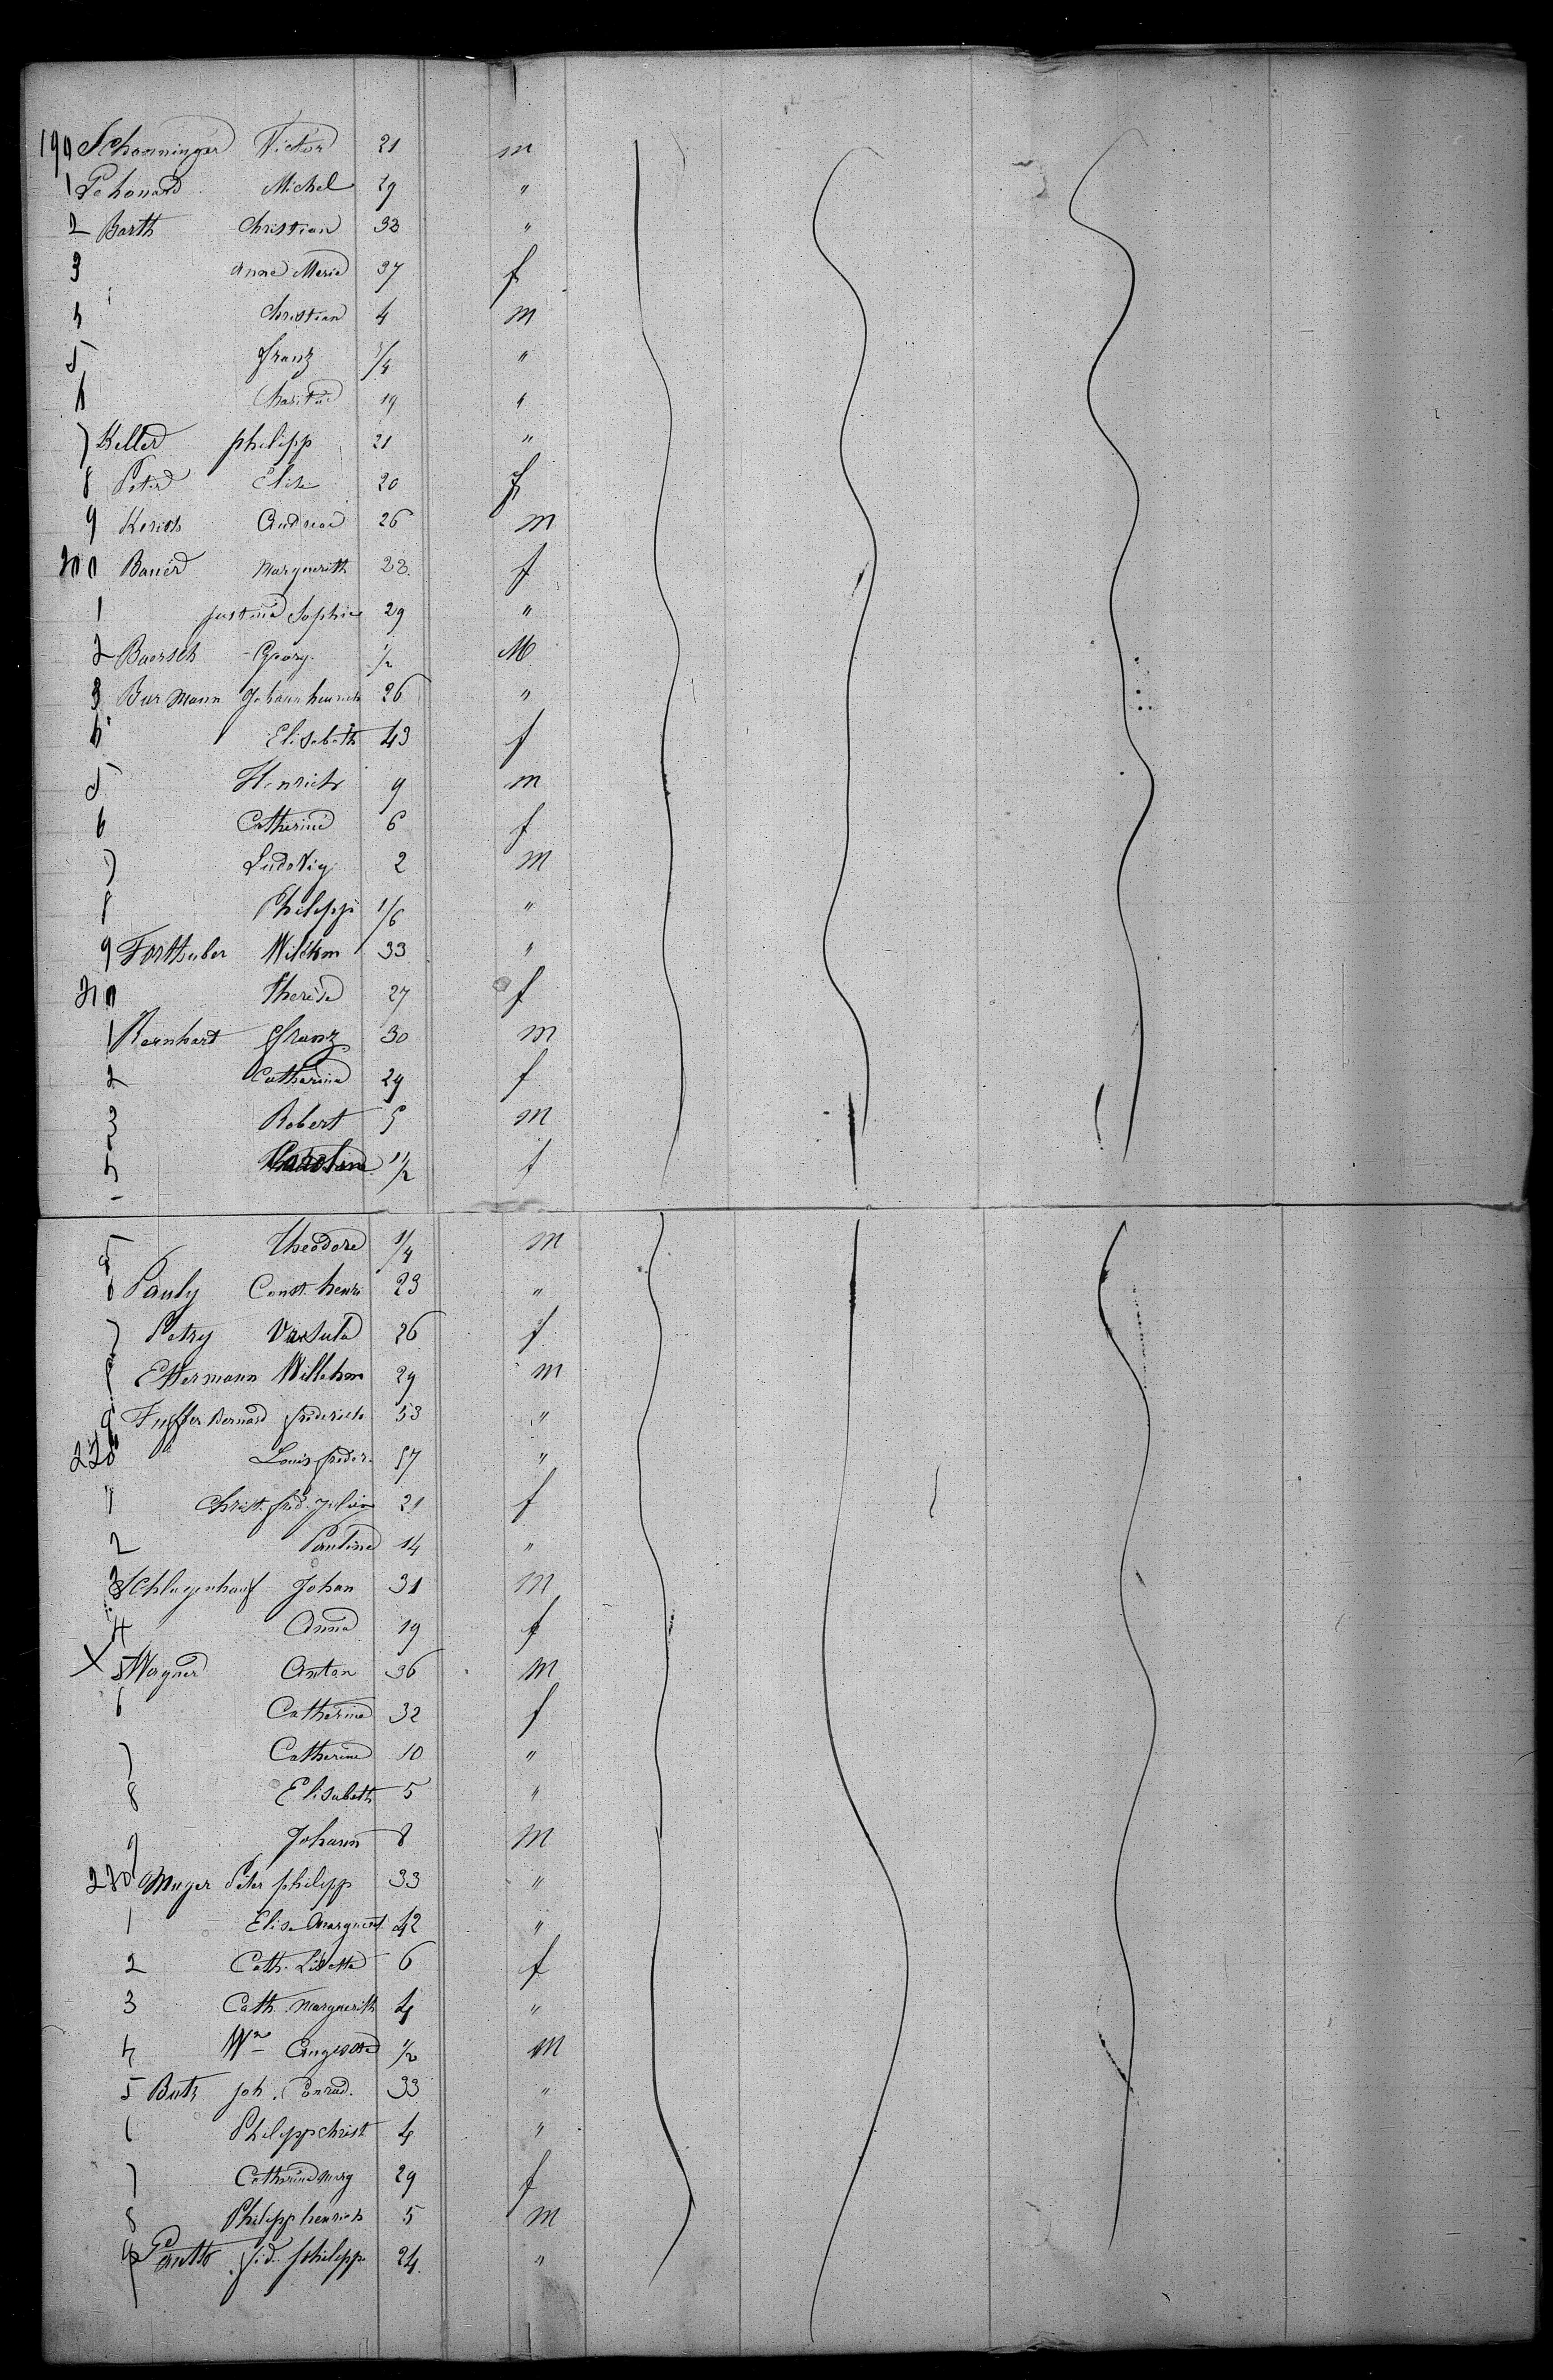 190 Schonninger Victor 21 m
1 Michel 29 "
2 Barth Christian 33 "
3 Anna Marie 37 f
4 Christian 4 m
5 Franz 3/4 "
6 19 "
7 Keller philipp 21 "
8 Peter Elise 20 f
9 Andreas 26 m
200 Bauer Marguerith 23 f
1 Justine Sophie 29 "
2 Baersch Georg 1/2 M
3 Bur Mann Johann heinrich 26 "
4 Elisabeth 43 f
5 Henrich 9 m
6 Catherine 6 f
7 Ludovig 2 m
8 Philipp 1/6 "
9 Forthuber Wilehm 33 "
210 Therese 27 f
1 Bernhart Franz 30 m
2 Catharina 29 f
3 Robert 5 m
4 Caroline 1 1/2 f
5 Theodore 1/4 m
6 Pauly Const. henri 23 "
7 Petry Ursula 26 f
8 Ettermann Willehm 29 m
9 Fuffer Bernard friderich 53 "
220 " Louis freder. 57 "
1 Christ. frid. Julia 21 f
2 Pauline 14 "
3 Schlagenhauf Johan 31 m
4 Anna 19 f
X 5 Wagner Anton 36 m
6 Catherine 32 f
7 Catherine 10 "
8 Elisabeth 5 "
9 Johann 8 m
230 Muger Peter philipp 33 "
1 Elisa Marguerit 42 "
2 Cath. Lisetta 6 f
3 Cath. Marguerith 4 "
4 Wm 1/2 M
5 Butz Joh. Conrad. 33 "
6 Philipp Christ 4 "
7 Catherine Marg 29 f
8 Philipp henrich 5 m
9 frid. philipp 24 "